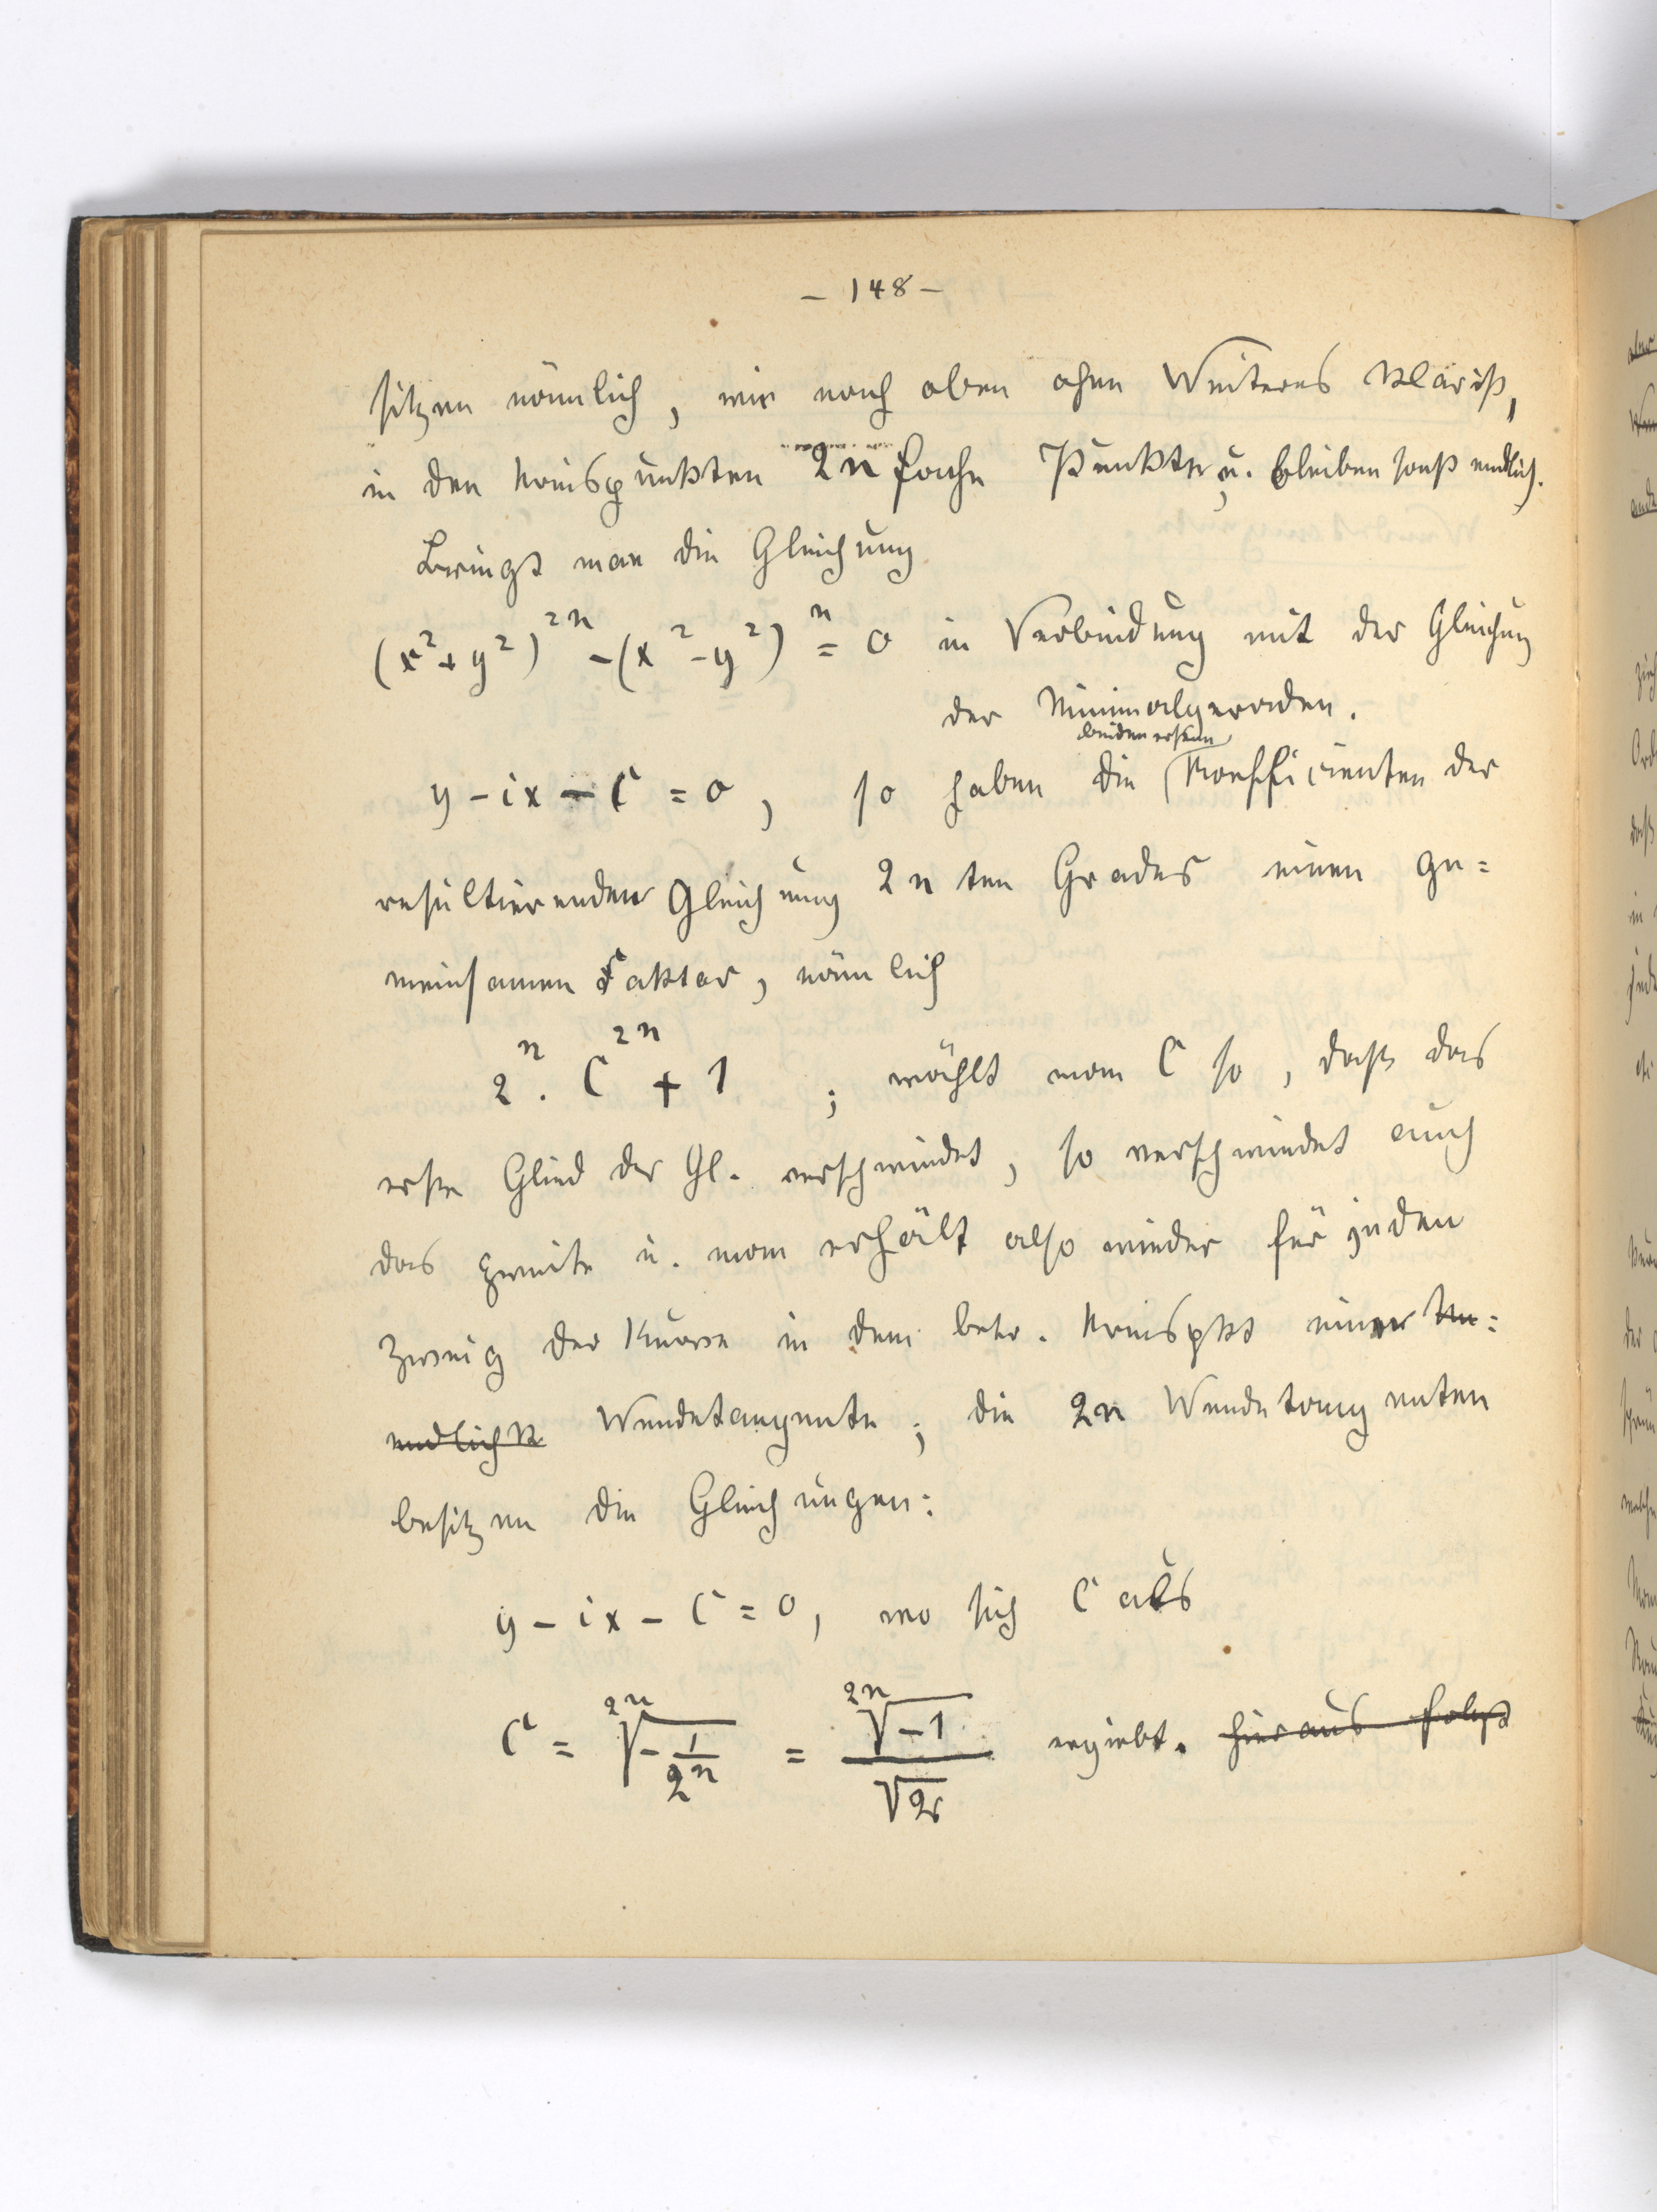 – 148 –
sitzen nämlich, wie nach oben ohne Weiteres klar ist,
in den Kreispunkten 2n fache Punkte, u. bleiben sonst endlich.
Bringt man die Gleichung
(x²+y²)²ⁿ – (x²–y²)ⁿ = 0 in Verbindung mit der Gleichung
der Minimalgeraden.
beiden ersten
y – ix – C = 0, so haben die Koefficienten der
resultierenden Gleichung 2n ten Grades einen ge=
meinsamen Faktor, nämlich
2ⁿ . C²ⁿ + 1 ; wählt man C so, dass das
erste Glied der Gl. verschwindet, so verschwindet auch
das zweite u. man erhält also wieder für jeden
Zweig der Kurve in dem betr. Kreispkt eine Un=
endliche Wendetangente; die 2n Wendetangenten
besitzen die Gleichungen:
y – ix – C = 0, wo sich C aus
C = ²ⁿ√(–1/2ⁿ) = ²ⁿ√–1 / √2 ergiebt. hieraus folgt